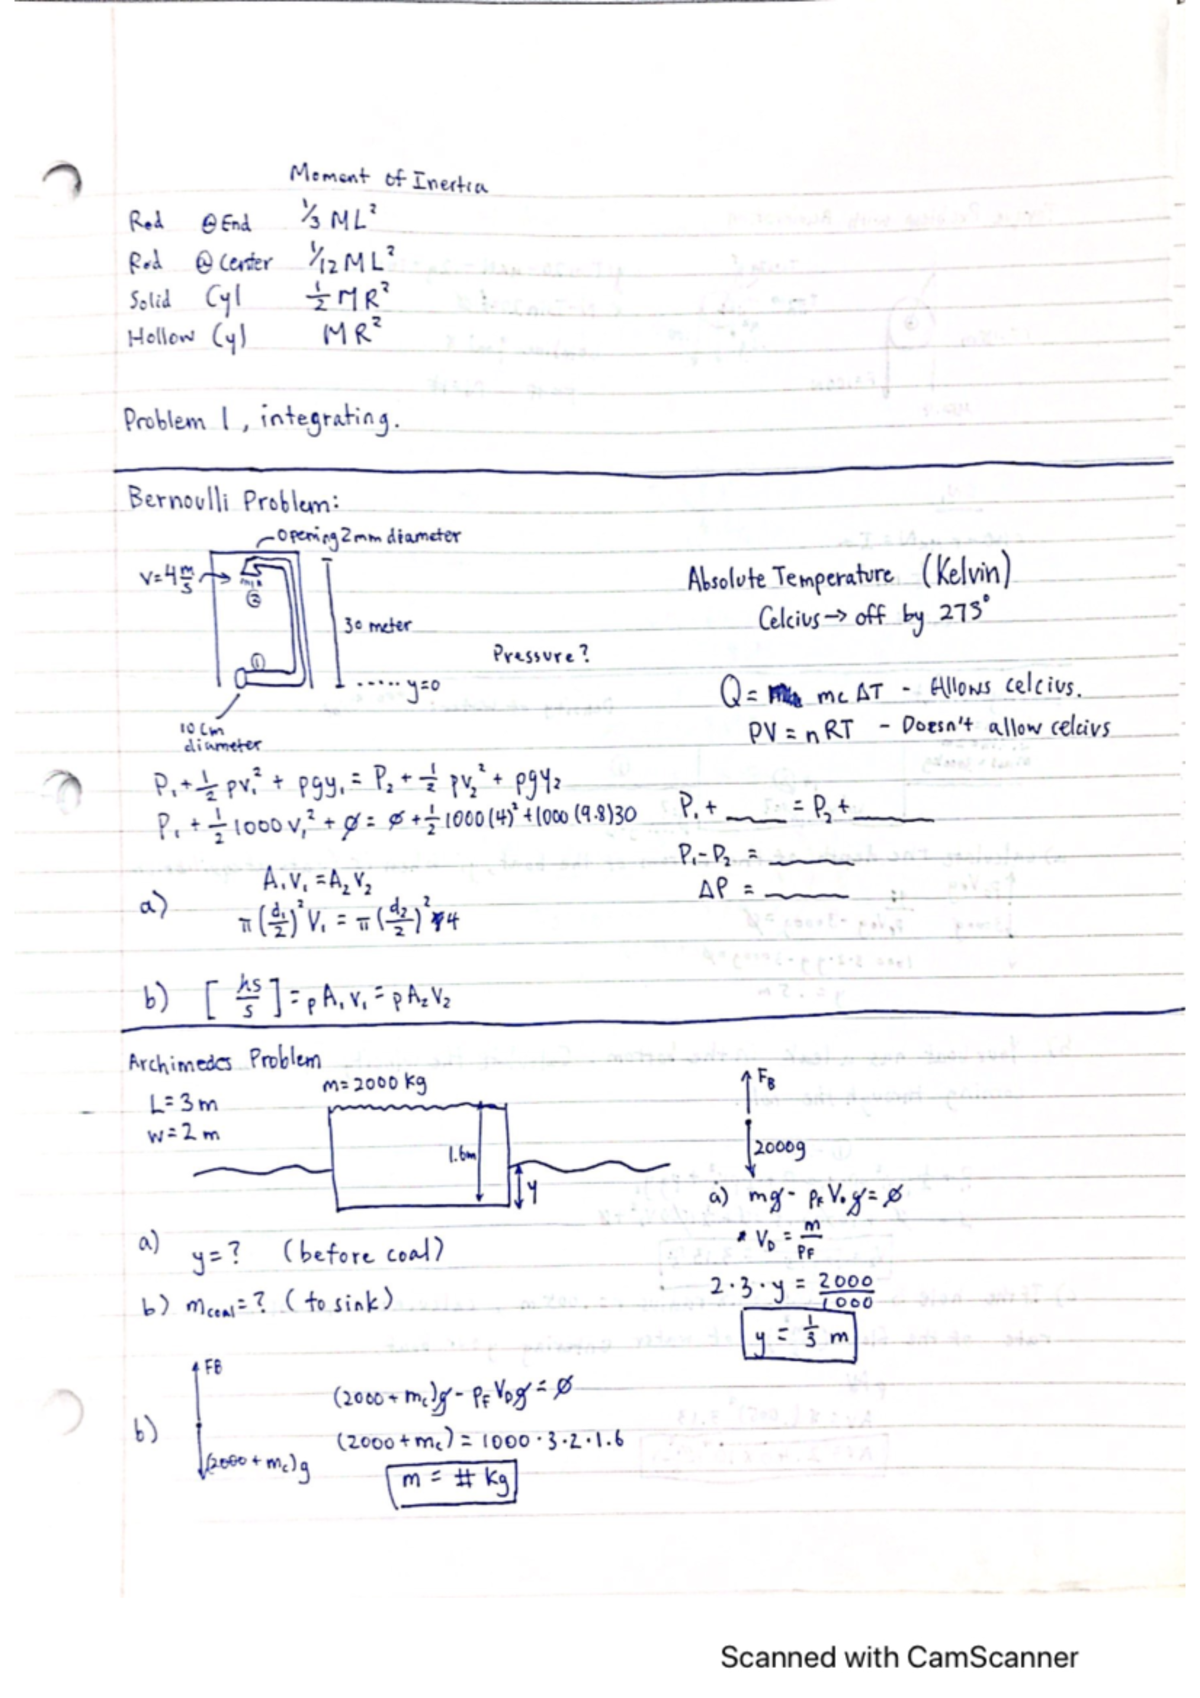 Moment of Inertia
Rod @ End 1/3 ML²
Rod @ Center 1/12 ML²
Solid Cyl 1/2 MR²
Hollow Cyl MR²
Problem 1, integrating.
Bernoulli Problem:
opening 2mm diameter
V=4 m/s
②
30 meter
①
y=0
10 cm
diameter
Pressure?
Absolute Temperature (Kelvin)
Celcius → off by 273°
Q = mc ΔT - Allows celcius.
PV = nRT - Doesn't allow celcius
P₁ + 1/2 ρv₁² + ρgy₁ = P₂ + 1/2 ρv₂² + ρgy₂
P₁ + 1/2 1000 v₁² + ∅ = ∅ + 1/2 1000 (4)² + 1000 (9.8) 30
P₁ + ____ = P₂ + ____
P₁ - P₂ = ____
ΔP = ____
a) A₁V₁ = A₂V₂
π(d₁/2)² V₁ = π(d₂/2)² 4
b) [ /s ] = ρA₁V₁ = ρA₂V₂
Archimedes Problem
L = 3 m
w = 2 m
m = 2000 kg
1.6m
y
F_B
2000g
a) y = ? (before coal)
b) m_coal = ? (to sink)
a) mg - ρ_F V_D g = ∅
* V_D = m/ρ_F
2·3·y = 2000/1000
y = 1/3 m
b)
FB
(2000 + m_c)g
(2000 + m_c)g - ρ_F V_D g = ∅
(2000 + m_c) = 1000·3·2·1.6
m = # kg
Scanned with CamScanner